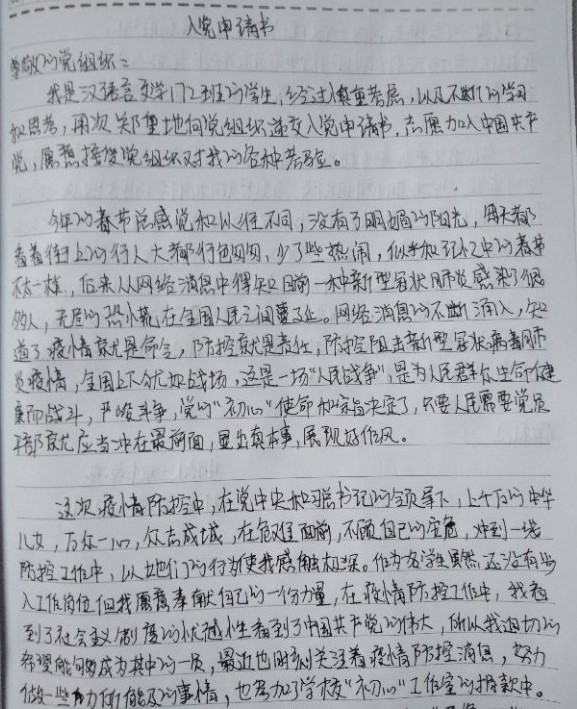 入党申请书
尊敬的党组织：
我是汉语言文学1712班的学生，经过慎重考虑，以及不断的学习
和思考，再次郑重地向党组织递交入党申请书，志愿加入中国共产
党，愿意接受党组织对我的各种考验。
今年的春节总感觉和以往不同，没有了明媚的阳光，每天都
看着街上的行人大都行色匆匆，少了些热闹，似乎和记忆中的春节
不太一样，后来从网络消息中得知目前一种新型冠状肺炎感染了很
多人，无尽的恐慌在全国人民之间蔓延。网络消息的不断涌入，知
道了疫情就是命令，防控就是责任，防控阻击新型冠状病毒肺
炎疫情，全国上下犹如战场，这是一场“人民战争”，是为人民群众生命健
康而战斗，严峻斗争，党的“初心”使命和宗旨决定了，只要人民需要党员
干部就应当冲在最前面，显出真本事，展现好作风。
这次疫情防控中，在党中央和习总书记的领导下，上千万的中华
儿女，万众一心，众志成城，在危难面前，不顾自己的安危，冲到一线
防控工作中，以她们的行为使我感触极深。作为名学生虽然还没有步
入工作岗位但我愿意奉献自己的一份力量，在疫情防控工作中，我看
到了社会主义制度的优越性看到了中国共产党的伟大，所以我迫切的
希望能够成为其中的一员，最近也时刻关注着疫情防控消息，努力
做一些力所能及的事情，也参加了学校“初心”工作室的捐款中。